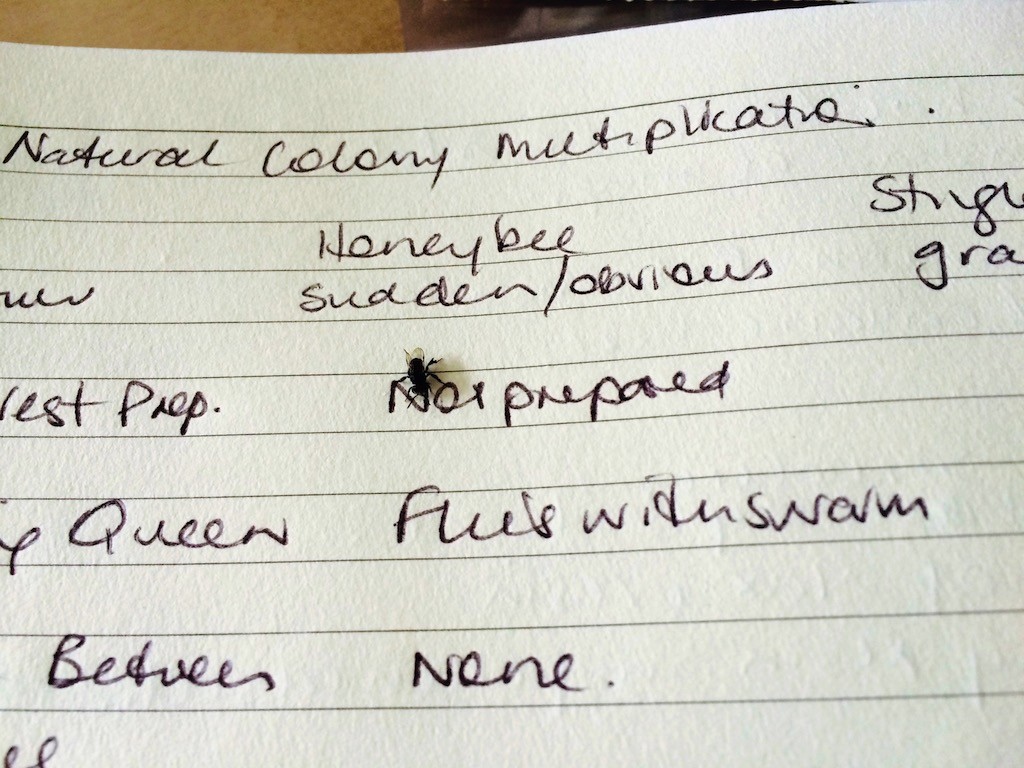 Natural Colony Multiplication.
Honeybee
sudden/obvious gra
Nest Prep. Not prepared
Queen Flies with swarm
Between None.